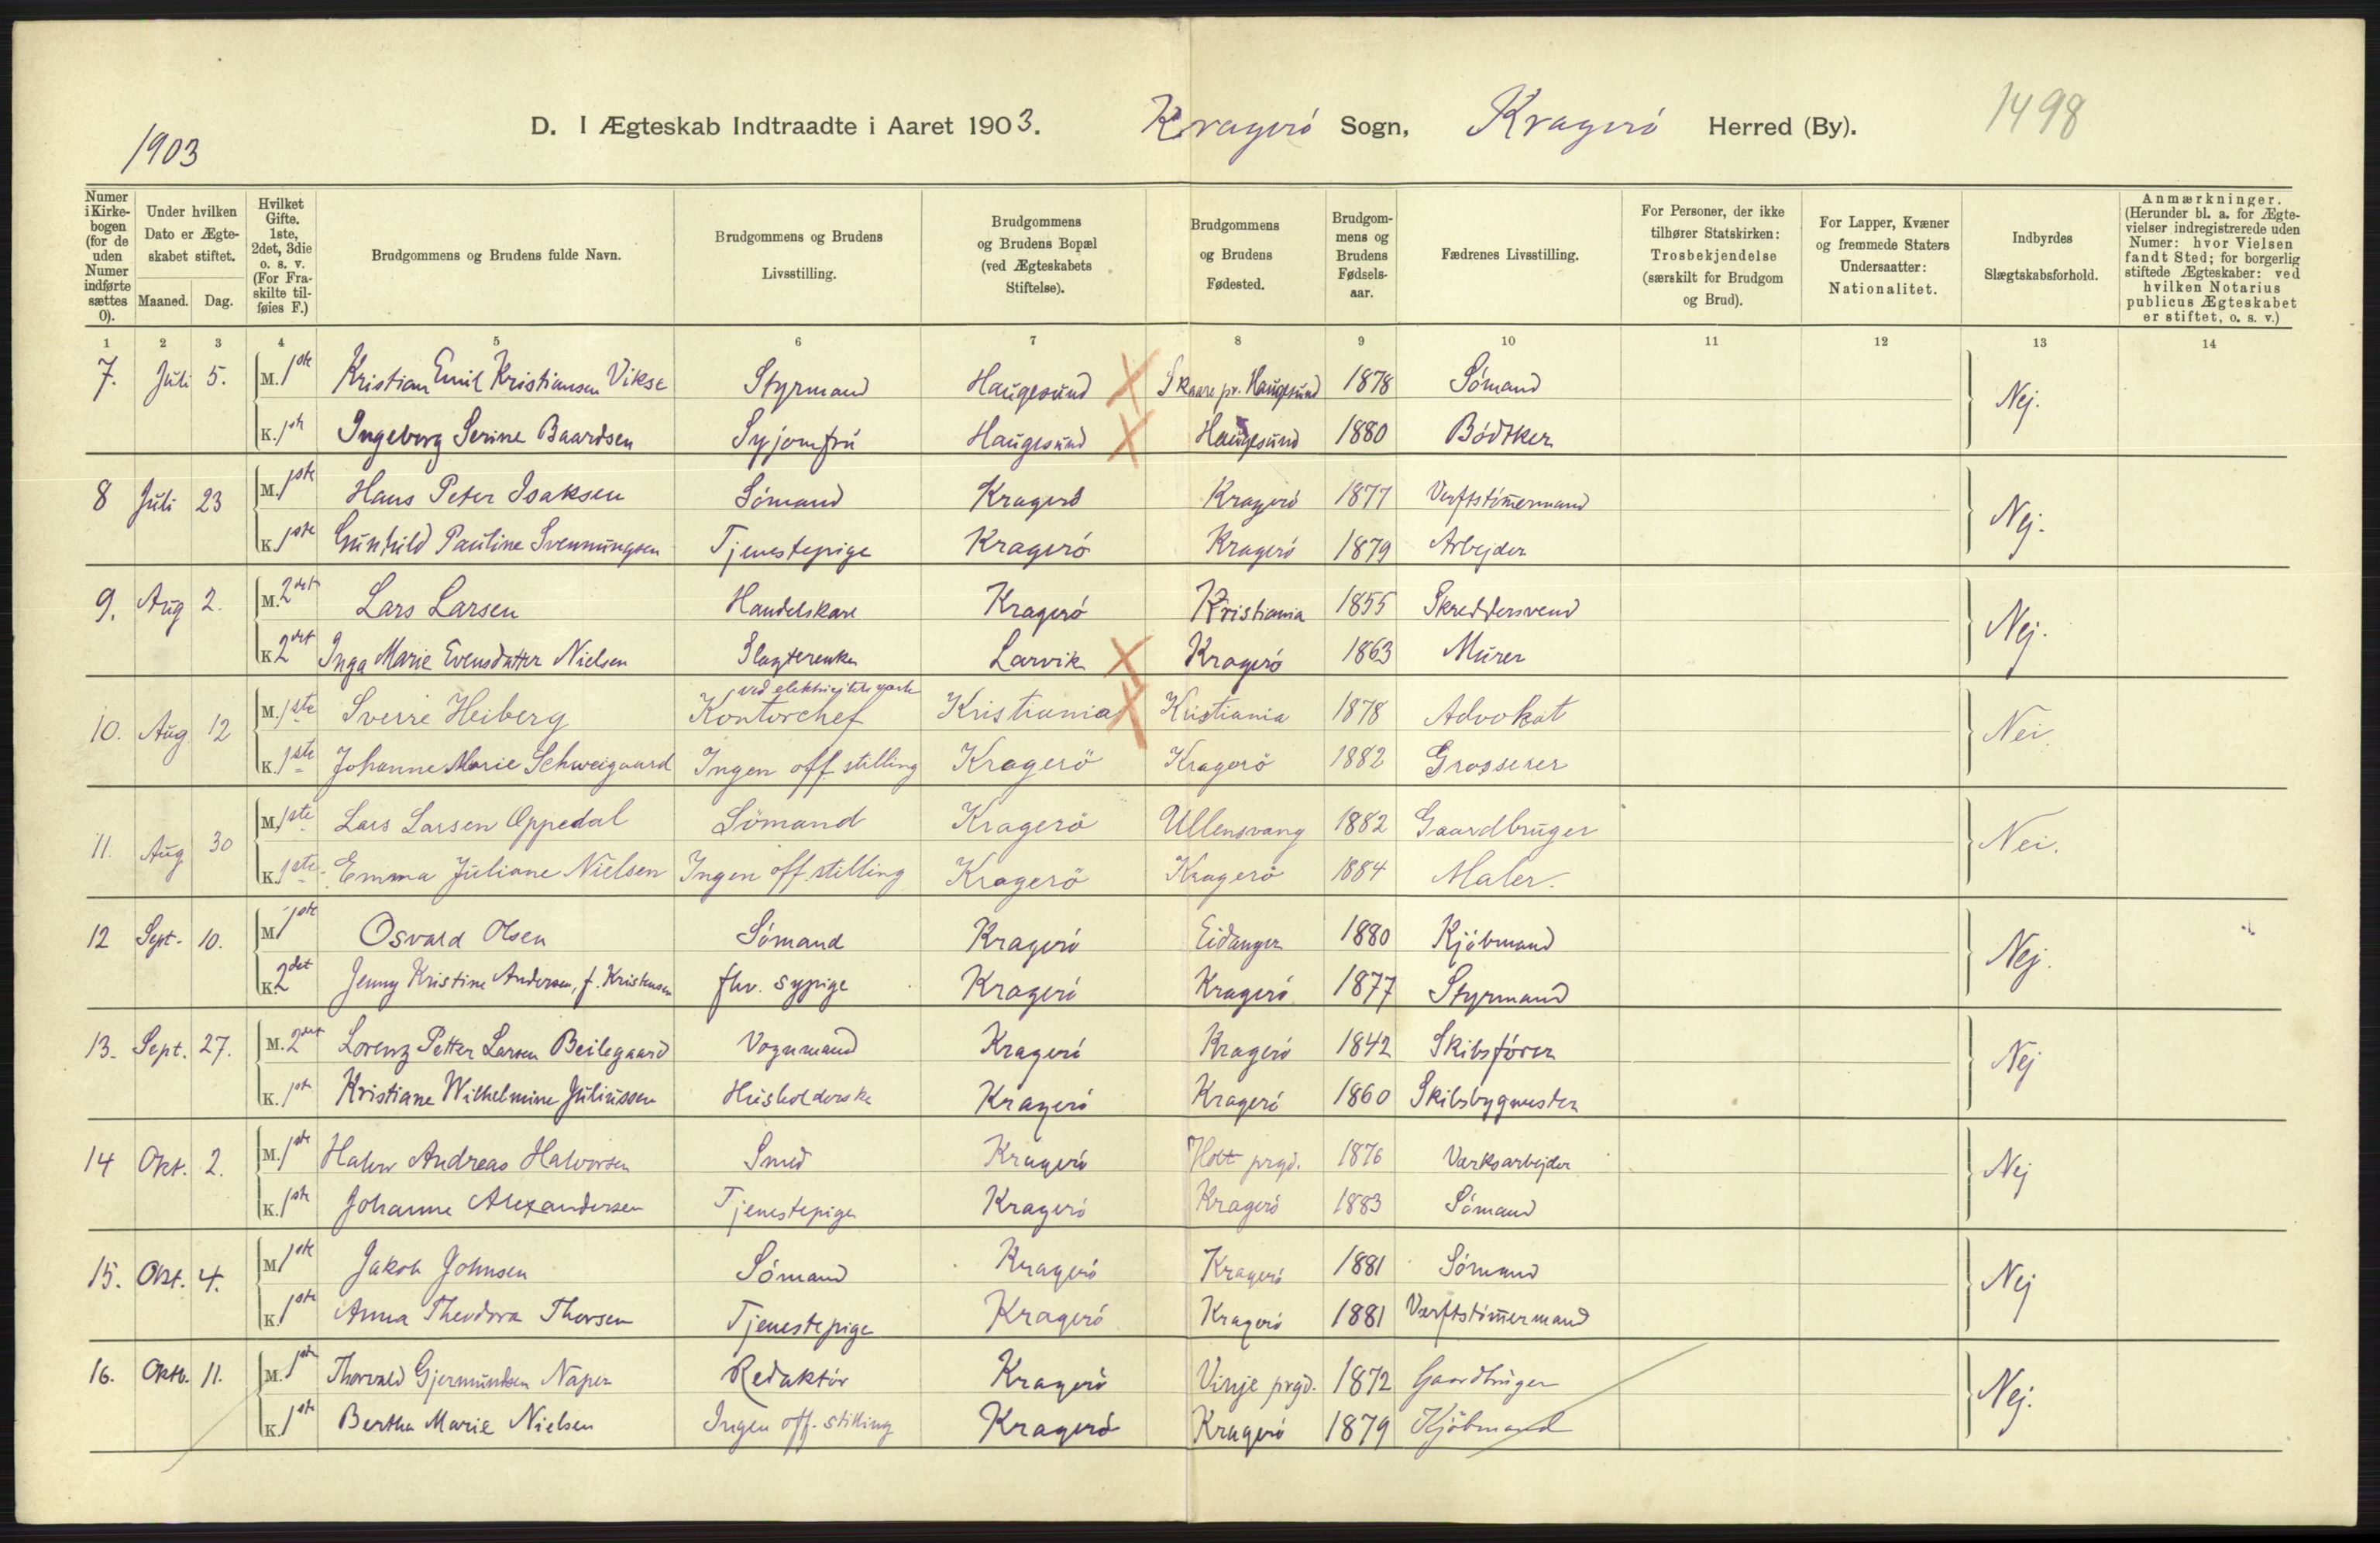 D. I Ægteskab Indtraadte i Aaret 1903. Kragerö Sogn, Kragerö Herred (By). 1498
1903
Numer i Kirke-bogen (for de uden Numer indførte sættes 0). Under hvilken Dato er Ægte-skabet stiftet. Maaned. Dag. Hvilket Gifte. 1ste, 2det, 3die o. s. v. (For Fra-skilte til-føies F.) Brudgommens og Brudens fulde Navn. Brudgommens og Brudens Livsstilling. Brudgommens og Brudens Bopæl (ved Ægteskabets Stiftelse). Brudgommens og Brudens Fødested. Brudgom-mens og Brudens Fødsels-aar. Fædrenes Livsstilling. For Personer, der ikke tilhører Statskirken: Trosbekjendelse (særskilt for Brudgom og Brud). For Lapper, Kvæner og fremmede Staters Undersaatter: Nationalitet. Indbyrdes Slægtskabsforhold. Anmærkninger. (Herunder bl. a. for Ægte-vielser indregistrerede uden Numer: hvor Vielsen fandt Sted; for borgerlig stiftede Ægteskaber: ved hvilken Notarius publicus Ægteskabet er stiftet, o. s. v.)
1 2 3 4 5 6 7 8 9 10 11 12 13 14
7. Juli 5. M. 1ste Kristian Emil Kristiansen Vikse Styrmand Haugesund X Skaare pr. Haugesund 1878 Sömand Nej.
K. 1ste Ingeborg Serine Baardsen Syjomfru Haugesund X Haugesund 1880 Bödtker
8 Juli 23 M. 1ste Hans Peter Isaksen Sömand Kragerö Kragerö 1877 Verftstömermand Nej.
K. 1ste Gunhild Pauline Svennungsen Tjenestepige Kragerö Kragerö 1879 Arbejder
9. Aug 2. M. 2det Lars Larsen Handelskar Kragerö Kristiania 1855 Skreddersvend Nej.
K. 2det Inga Marie Evensdatter Nielsen Slagterenke Larvik X Kragerö 1863 Murer
10. Aug 12 M. 1ste Sverre Heiberg Kontorchef ved elektricitetsverk Kristiania X Kristiania 1878 Advokat Nei.
K. 1ste Johanne Marie Schweigaard Ingen off. stilling Kragerö Kragerö 1882 Grosserer
11. Aug 30 M. 1ste Lars Larsen Oppedal Sömand Kragerö Ullensvang 1882 Gaardbruger Nei.
K. 1ste Emma Juliane Nielsen Ingen off. stilling Kragerö Kragerö 1884 Maler.
12 Sept. 10. M. 1ste Osvald Olsen Sömand Kragerö Eidanger 1880 Kjöbmand Nej.
K. 2det Jenny Kristine Andersen, f. Kristensen fhv. sypige Kragerö Kragerö 1877 Styrmand
13. Sept. 27. M. 2det Lorenz Petter Larsen Beilegaard Vognmand Kragerö Kragerö 1842 Skibsförer Nej
K. 1ste Kristiane Wilhelmine Juliussen Husholderske Kragerö Kragerö 1860 Skibsbygmester
14 Okt. 2. M. 1ste Halvor Andreas Halvorsen Smed Kragerö Holt prgd. 1876 Værksarbejder Nej
K. 1ste Johanne Alexandersen Tjenestepige Kragerö Kragerö 1883 Sömand
15. Okt. 4. M. 1ste Jakob Johnsen Sömand Kragerö Kragerö 1881 Sömand Nej
K. 1ste Anna Theodora Thorsen Tjenestepige Kragerö Kragerö 1881 Værftstömermand
16. Oktb. 11. M. 1ste Thorvald Gjermundsen Naper Redaktör Kragerö Vinje prgd. 1872 Gaardbruger Nej.
K. 1ste Bertha Marie Nielsen Ingen off. stilling Kragerö Kragerö 1879 Kjöbmand